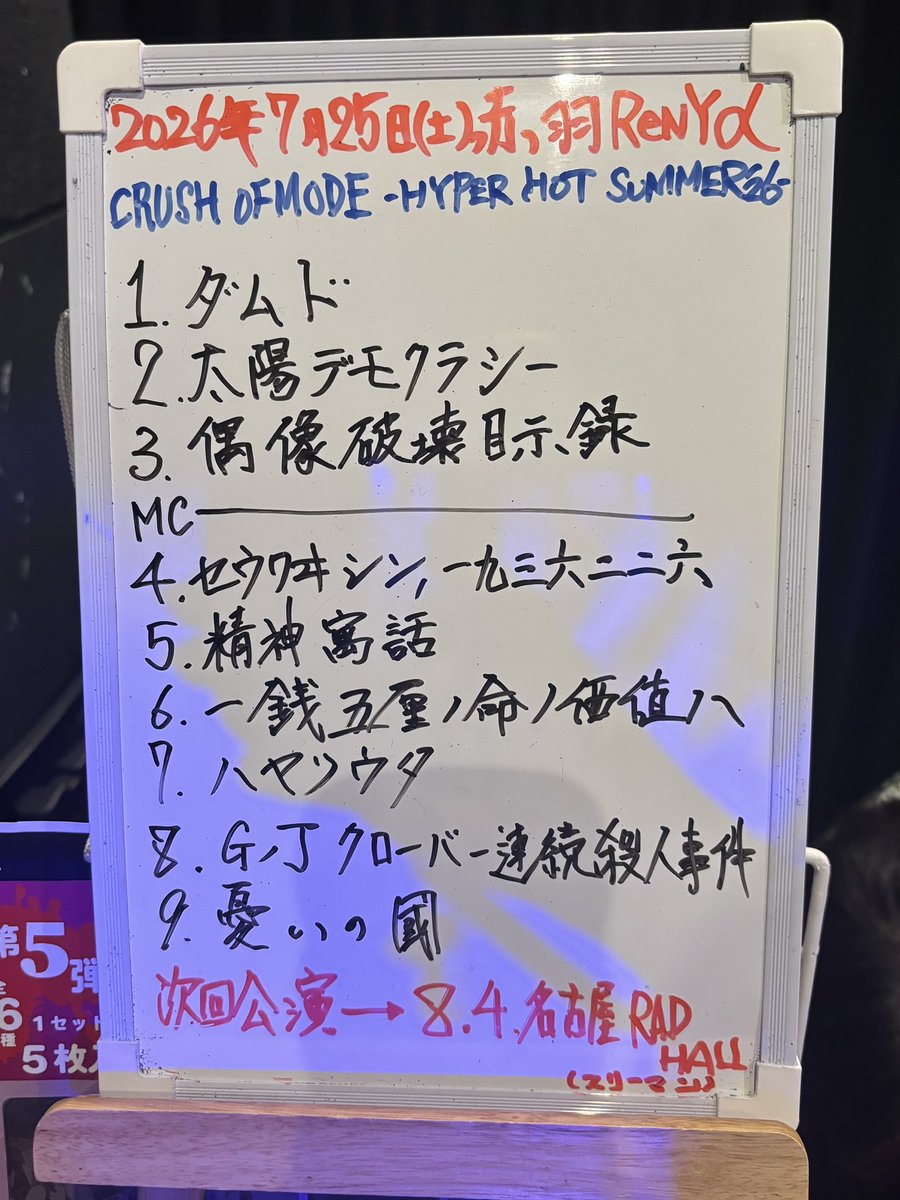 2026年7月25日(土)赤羽ReNYα
CRUSH OF MODE -HYPER HOT SUMMER'26-
1. ダムド
2. 太陽デモクラシー
3. 偶像破壊目示録
MC
4. セウワヰシン,一九三六二二六
5. 精神寓話
6. 一銭五厘ノ命ノ価値ハ
7. ハヤソウタ
8. G.Jクローバー連続殺人事件
9. 憂いの國
次回公演→8.4.名古屋RAD
HALL
(スリーマン)
第5弾
6種
1セット
5枚入